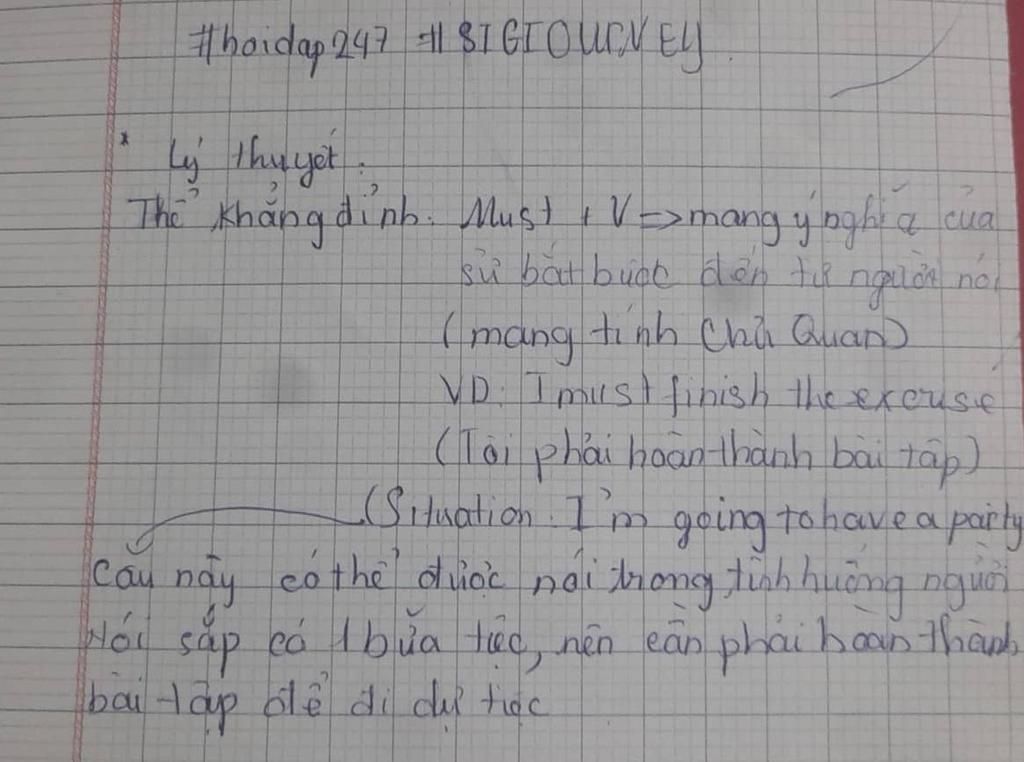 #hoidap247 #SIGIOURNEY
* Lý thuyết:
Thể khẳng định: Must + V => mang ý nghĩa của
sự bắt buộc đến từ người nói
(mang tính Chủ Quan)
VD: I must finish the exercise
(Tôi phải hoàn thành bài tập)
(Situation: I'm going to have a party
Câu này có thể được nói trong tình huống người
nói sắp có 1 bữa tiệc, nên cần phải hoàn thành
bài tập để đi dự tiệc